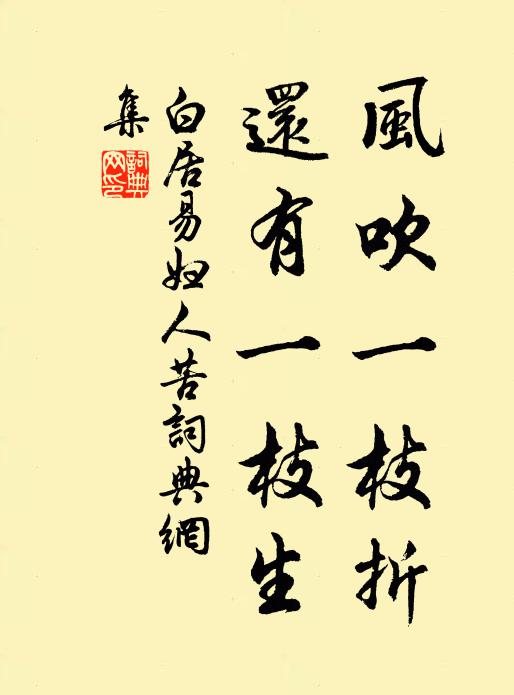 風吹一枝折
還有一枝生
白居易婦人苦詞典網
集
詞典
网印